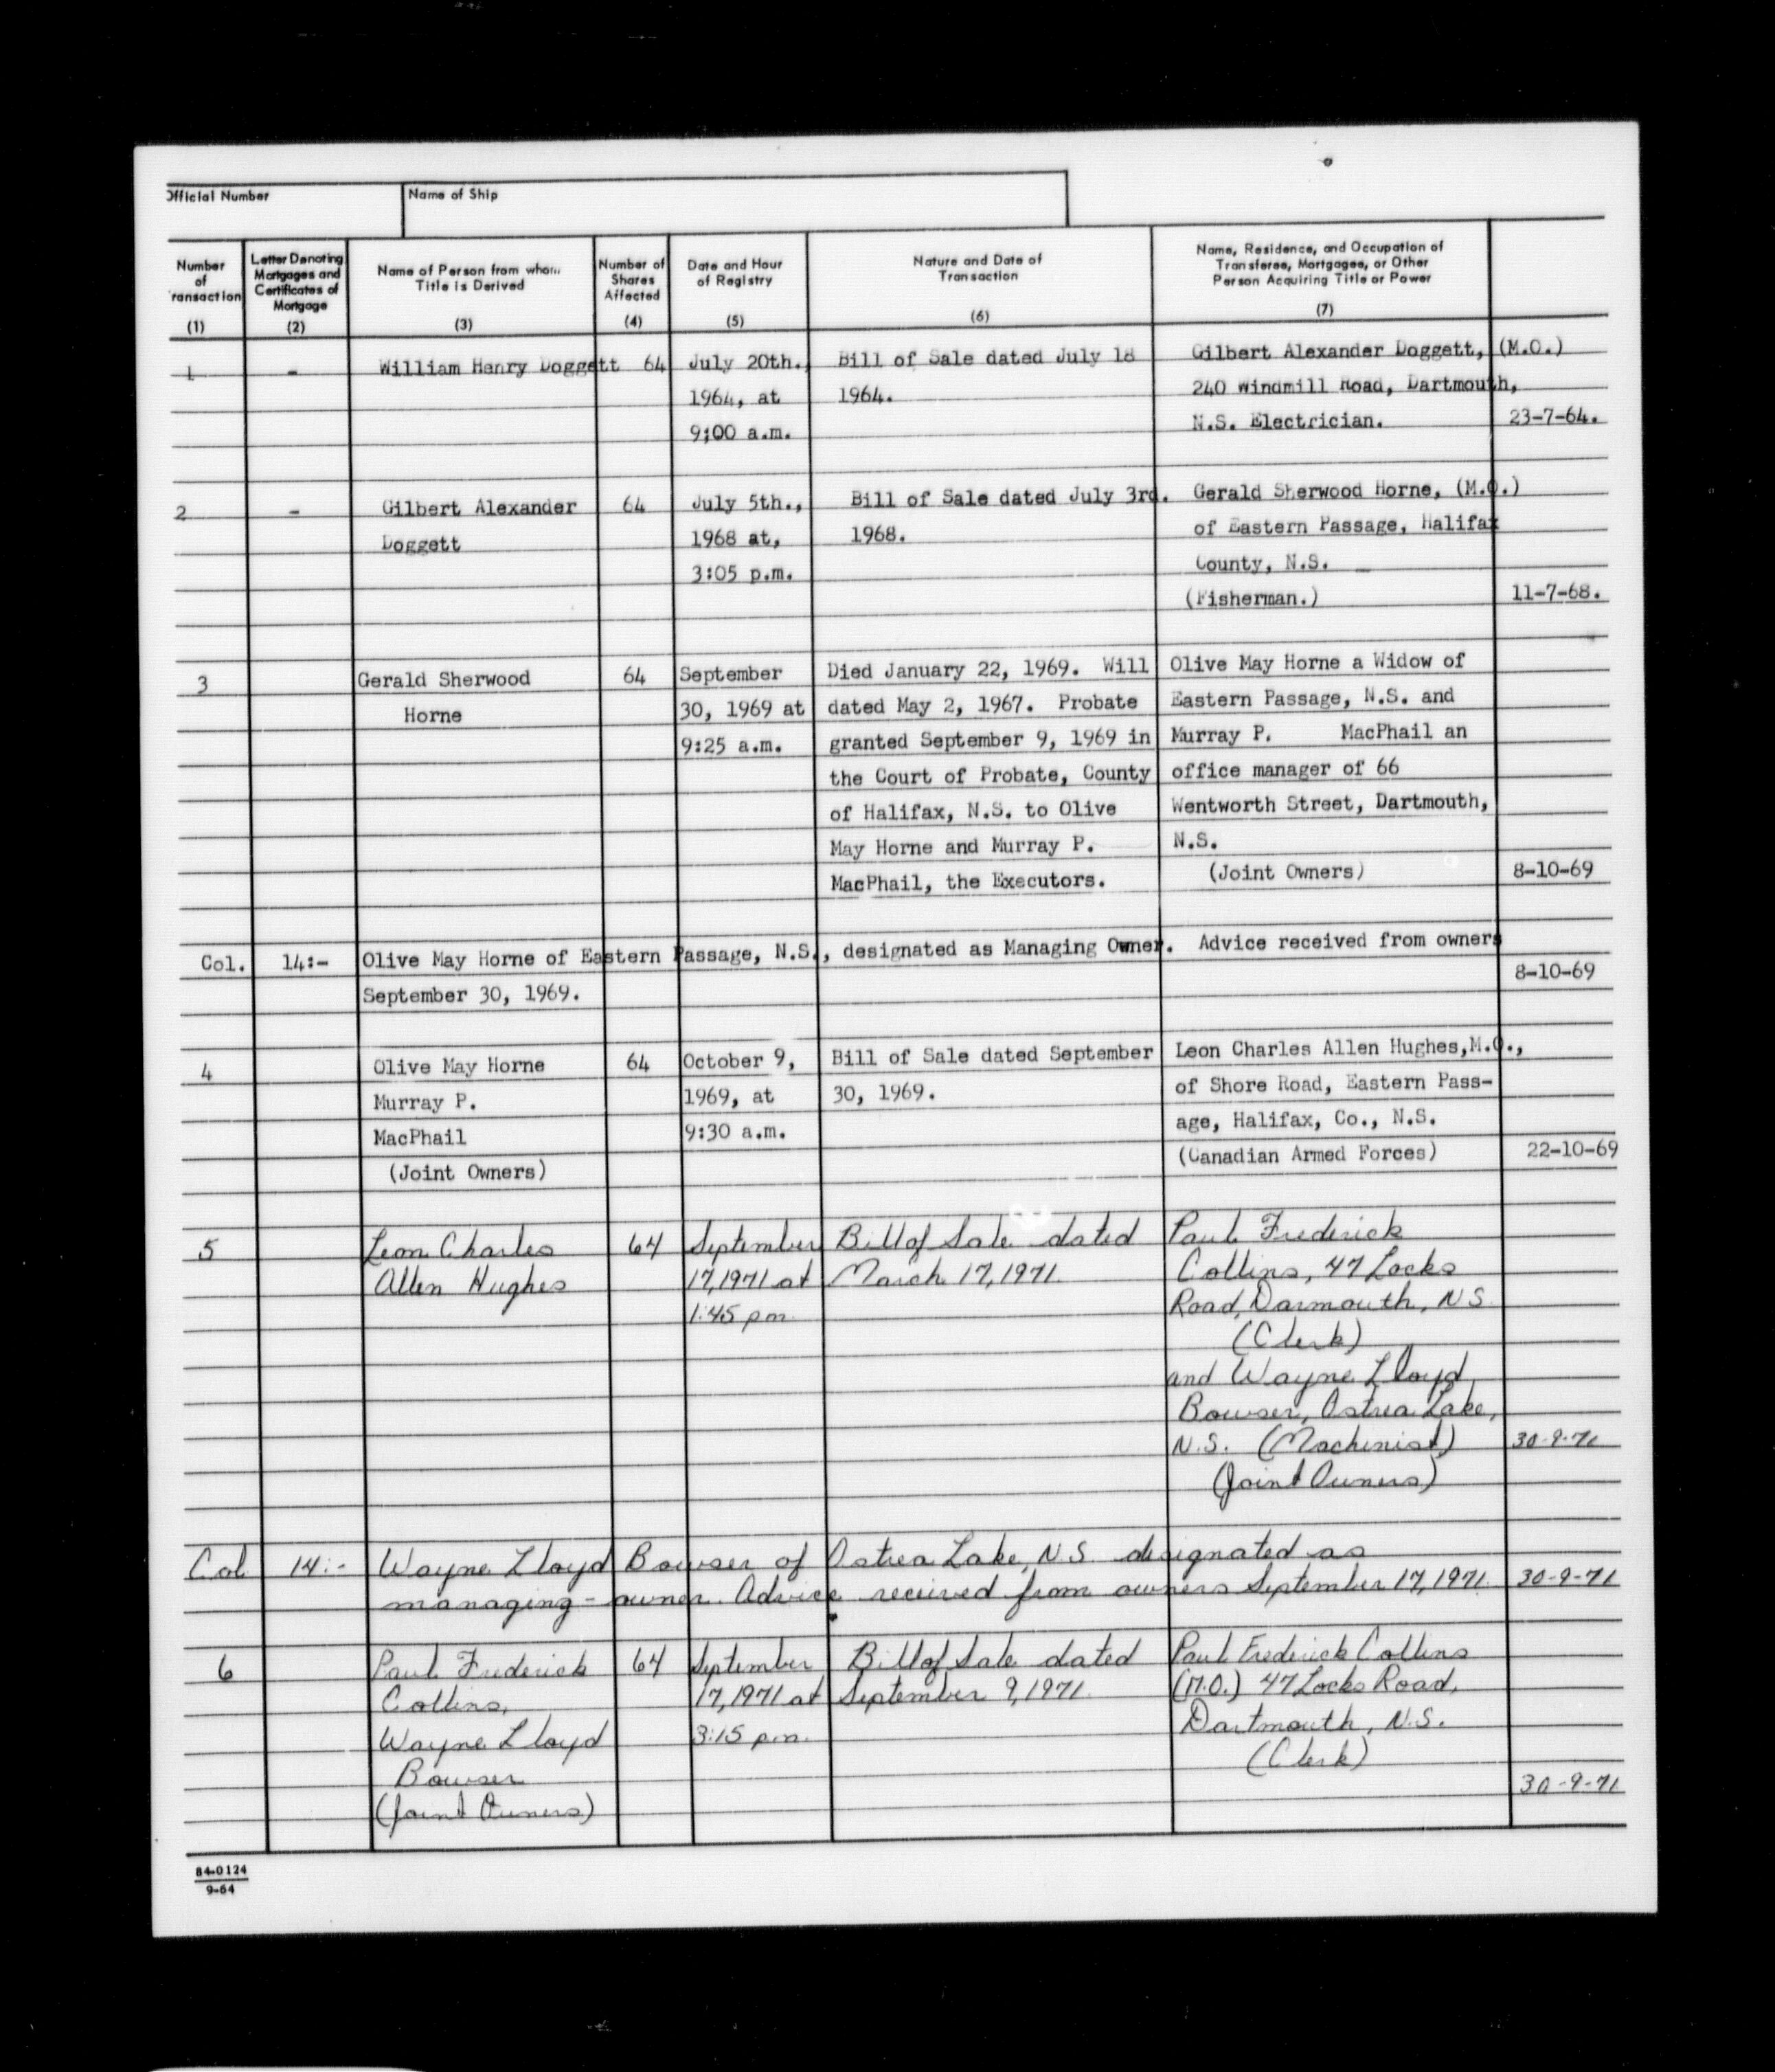 Official Number
Name of Ship
Number of Transaction (1)
Letter Denoting Mortgages and Certificates of Mortgage (2)
Name of Person from whom Title is Derived (3)
Number of Shares Affected (4)
Date and Hour of Registry (5)
Nature and Date of Transaction (6)
Name, Residence, and Occupation of Transferee, Mortgagee, or Other Person Acquiring Title or Power (7)
1 - William Henry Doggett 64 July 20th., Bill of Sale dated July 18 Gilbert Alexander Doggett, (M.O.)
1964, at 1964. 240 Windmill Road, Dartmouth,
9:00 a.m. N.S. Electrician. 23-7-64.
2 - Gilbert Alexander 64 July 5th., Bill of Sale dated July 3rd. Gerald Sherwood Horne, (M.O.)
Doggett 1968 at, 1968. of Eastern Passage, Halifax
3:05 p.m. County, N.S.
(Fisherman.) 11-7-68.
3 Gerald Sherwood 64 September Died January 22, 1969. Will Olive May Horne a Widow of
Horne 30, 1969 at dated May 2, 1967. Probate Eastern Passage, N.S. and
9:25 a.m. granted September 9, 1969 in Murray P. MacPhail an
the Court of Probate, County office manager of 66
of Halifax, N.S. to Olive Wentworth Street, Dartmouth,
May Horne and Murray P. N.S.
MacPhail, the Executors. (Joint Owners) 8-10-69
Col. 14:- Olive May Horne of Eastern Passage, N.S., designated as Managing Owner. Advice received from owners
September 30, 1969. 8-10-69
4 Olive May Horne 64 October 9, Bill of Sale dated September Leon Charles Allen Hughes,M.O.,
Murray P. 1969, at 30, 1969. of Shore Road, Eastern Pass-
MacPhail 9:30 a.m. age, Halifax, Co., N.S.
(Joint Owners) (Canadian Armed Forces) 22-10-69
5 Leon Charles 64 September Bill of Sale dated Paul Frederick
Allen Hughes 17, 1971 at March 17, 1971. Collins, 47 Locks
1:45 p.m. Road, Darmouth, N.S.
(Clerk)
and Wayne Lloyd
Bowser, Ostrea Lake,
N.S. (Machinist) 30-9-71
(Joint Owners)
Col. 14:- Wayne Lloyd Bowser of Ostrea Lake, N.S. designated as
managing-owner. Advice received from owners September 17, 1971. 30-9-71
6 Paul Frederick 64 September Bill of Sale dated Paul Frederick Collins
Collins, 17, 1971 at September 9, 1971. (M.O.) 47 Locks Road,
Wayne Lloyd 3:15 p.m. Dartmouth, N.S.
Bowser (Clerk)
(Joint Owners) 30-9-71
84-0124
9-64